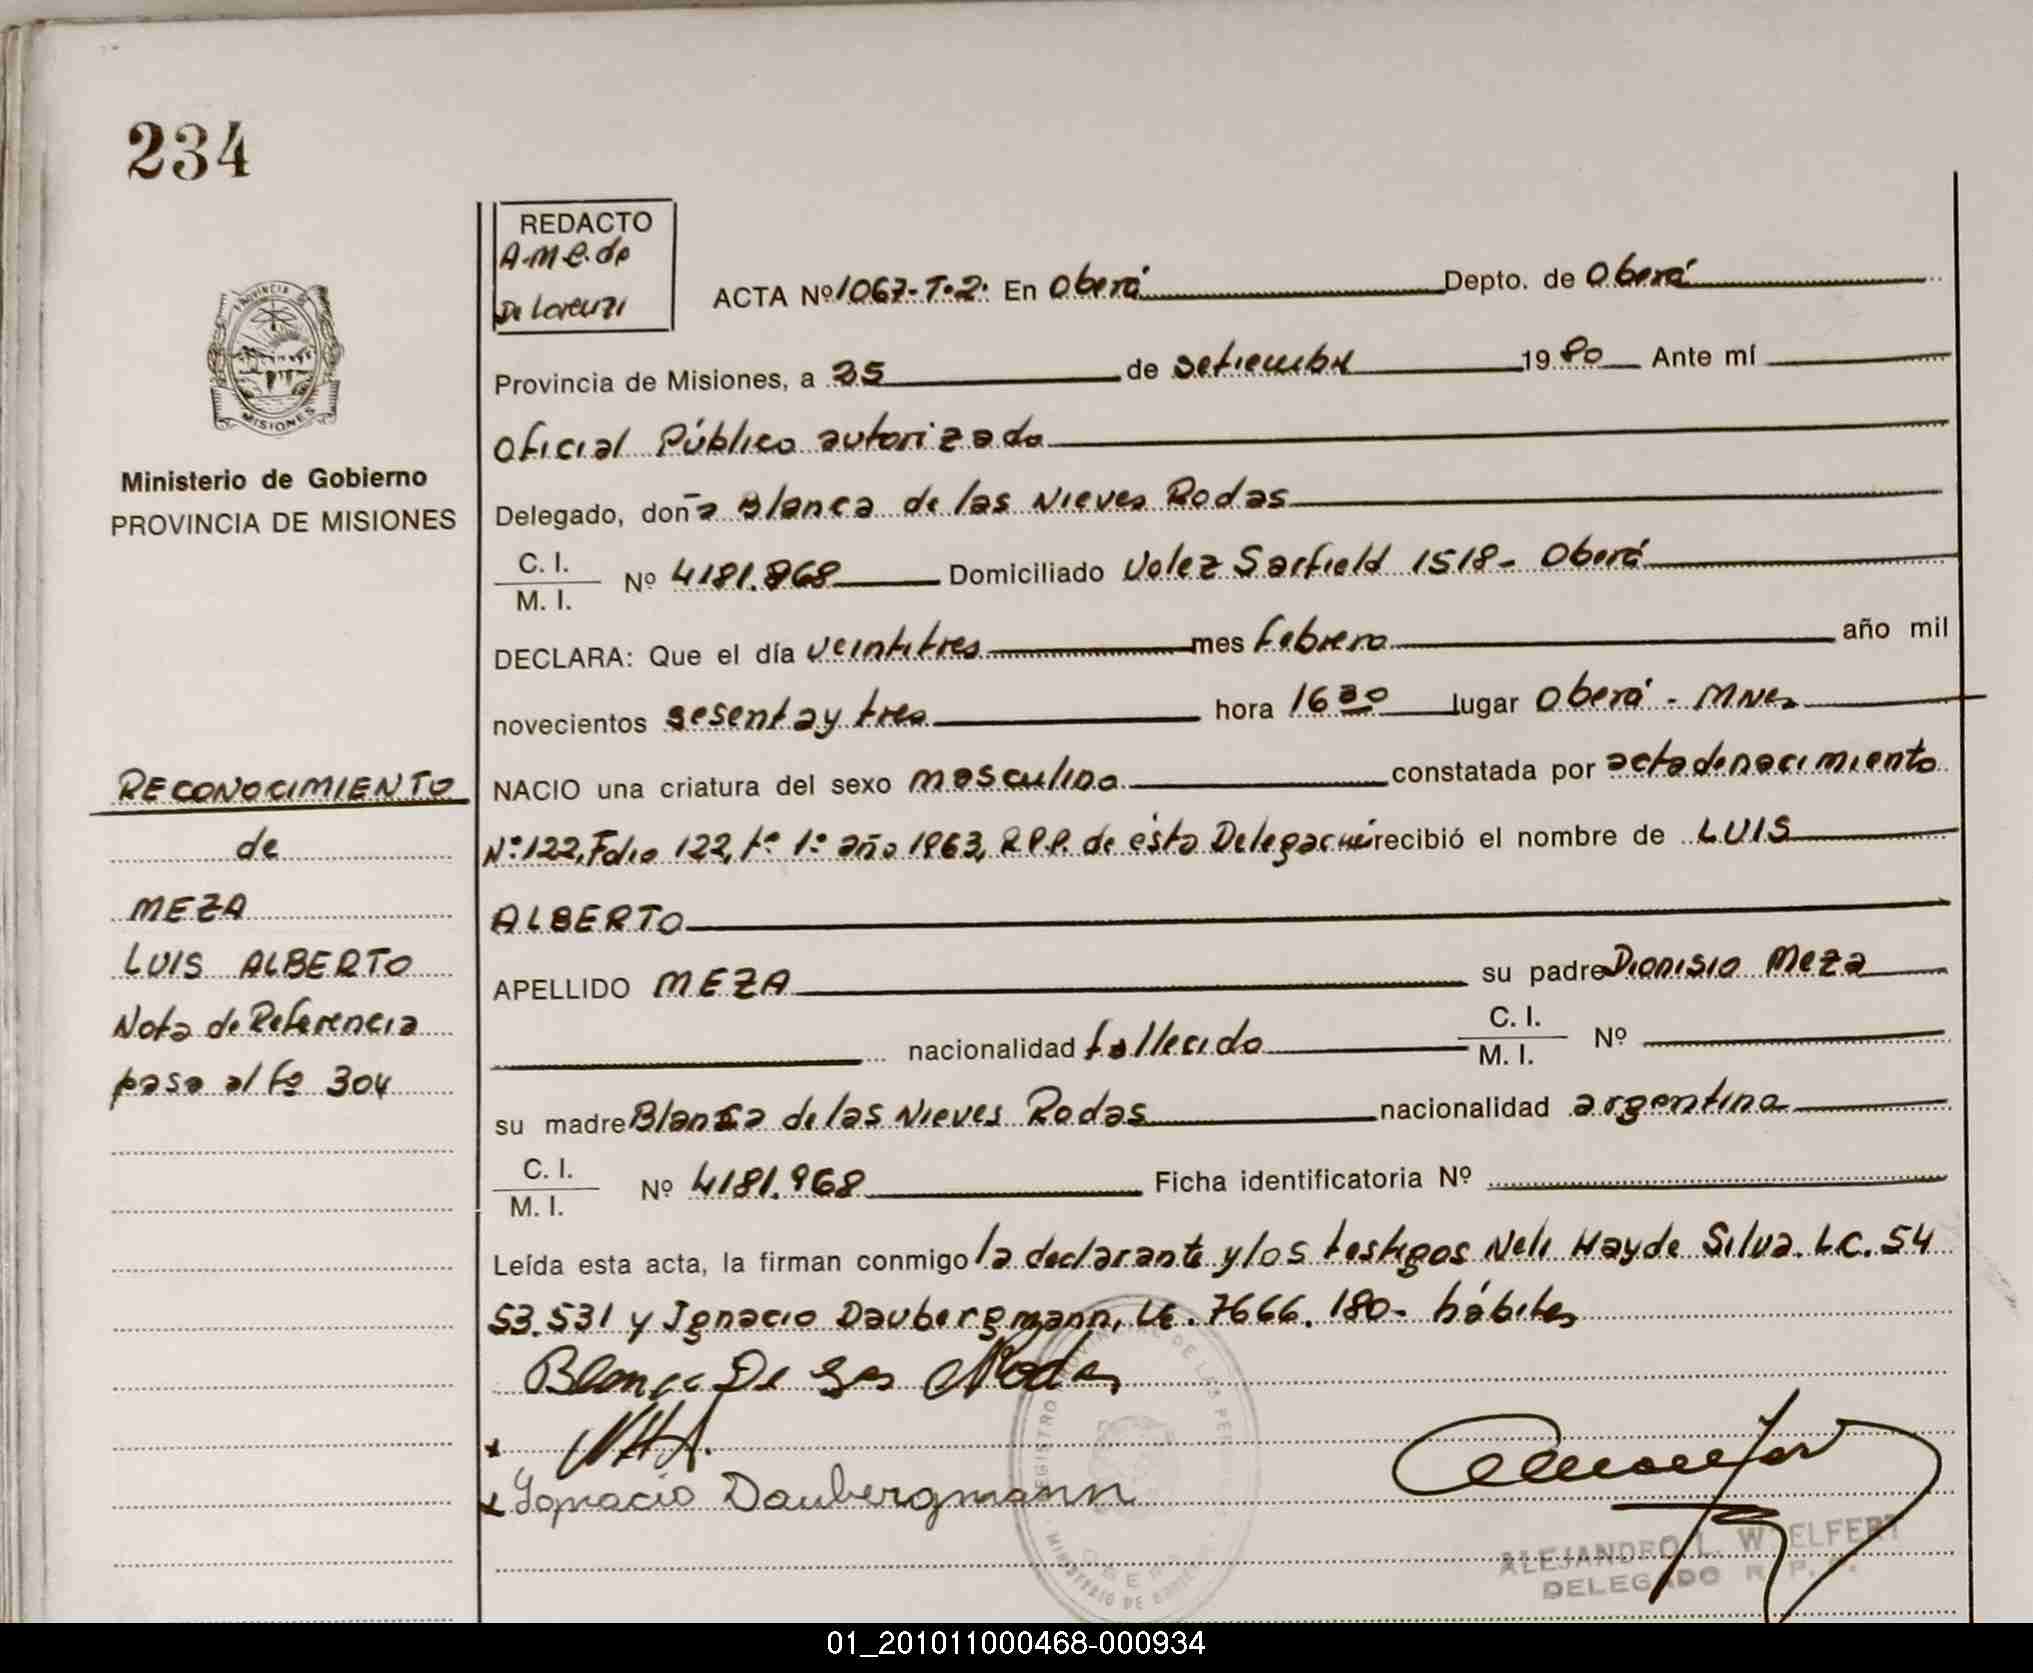 234
REDACTO
A.M.C. de
De Lorenzi
ACTA Nº 1067-T-2. En Oberá Depto. de Oberá
Provincia de Misiones, a 25 de setiembre 1980 Ante mí
Oficial Público autorizado
Delegado, doña Blanca de las Nieves Rodas
C. I.
M. I.
Nº 4181.968 Domiciliado Velez Sarfield 1518- Oberá
DECLARA: Que el día veintitres mes Febrero año mil
novecientos sesenta y tres hora 16 30 lugar Oberá - Mnes
NACIO una criatura del sexo masculino constatada por acta de nacimiento
Nº: 122, Folio 122, tº 1º año 1963, R.P.P. de ésta Delegación recibió el nombre de LUIS
ALBERTO
APELLIDO MEZA su padre Dionisio Meza
nacionalidad fallecido C. I.
M. I. Nº
su madre Blanca de las Nieves Rodas nacionalidad argentina
C. I.
M. I.
Nº 4181.968 Ficha identificatoria Nº
Leída esta acta, la firman conmigo la declarante y los testigos Neli Hayde Silva. L.C. 54
53.531 y Ignacio Daubergmann, LE. 7666.180- hábiles
Blanca De las Rodas
x
x Ignacio Daubergmann
ALEJANDRO L. WOELFERT
DELEGADO R. P. P.
PROVINCIA DE
MISIONES
Ministerio de Gobierno
PROVINCIA DE MISIONES
RECONOCIMIENTO
de
MEZA
LUIS ALBERTO
Nota de Referencia
pasa al Fº 304
01_201011000468-000934